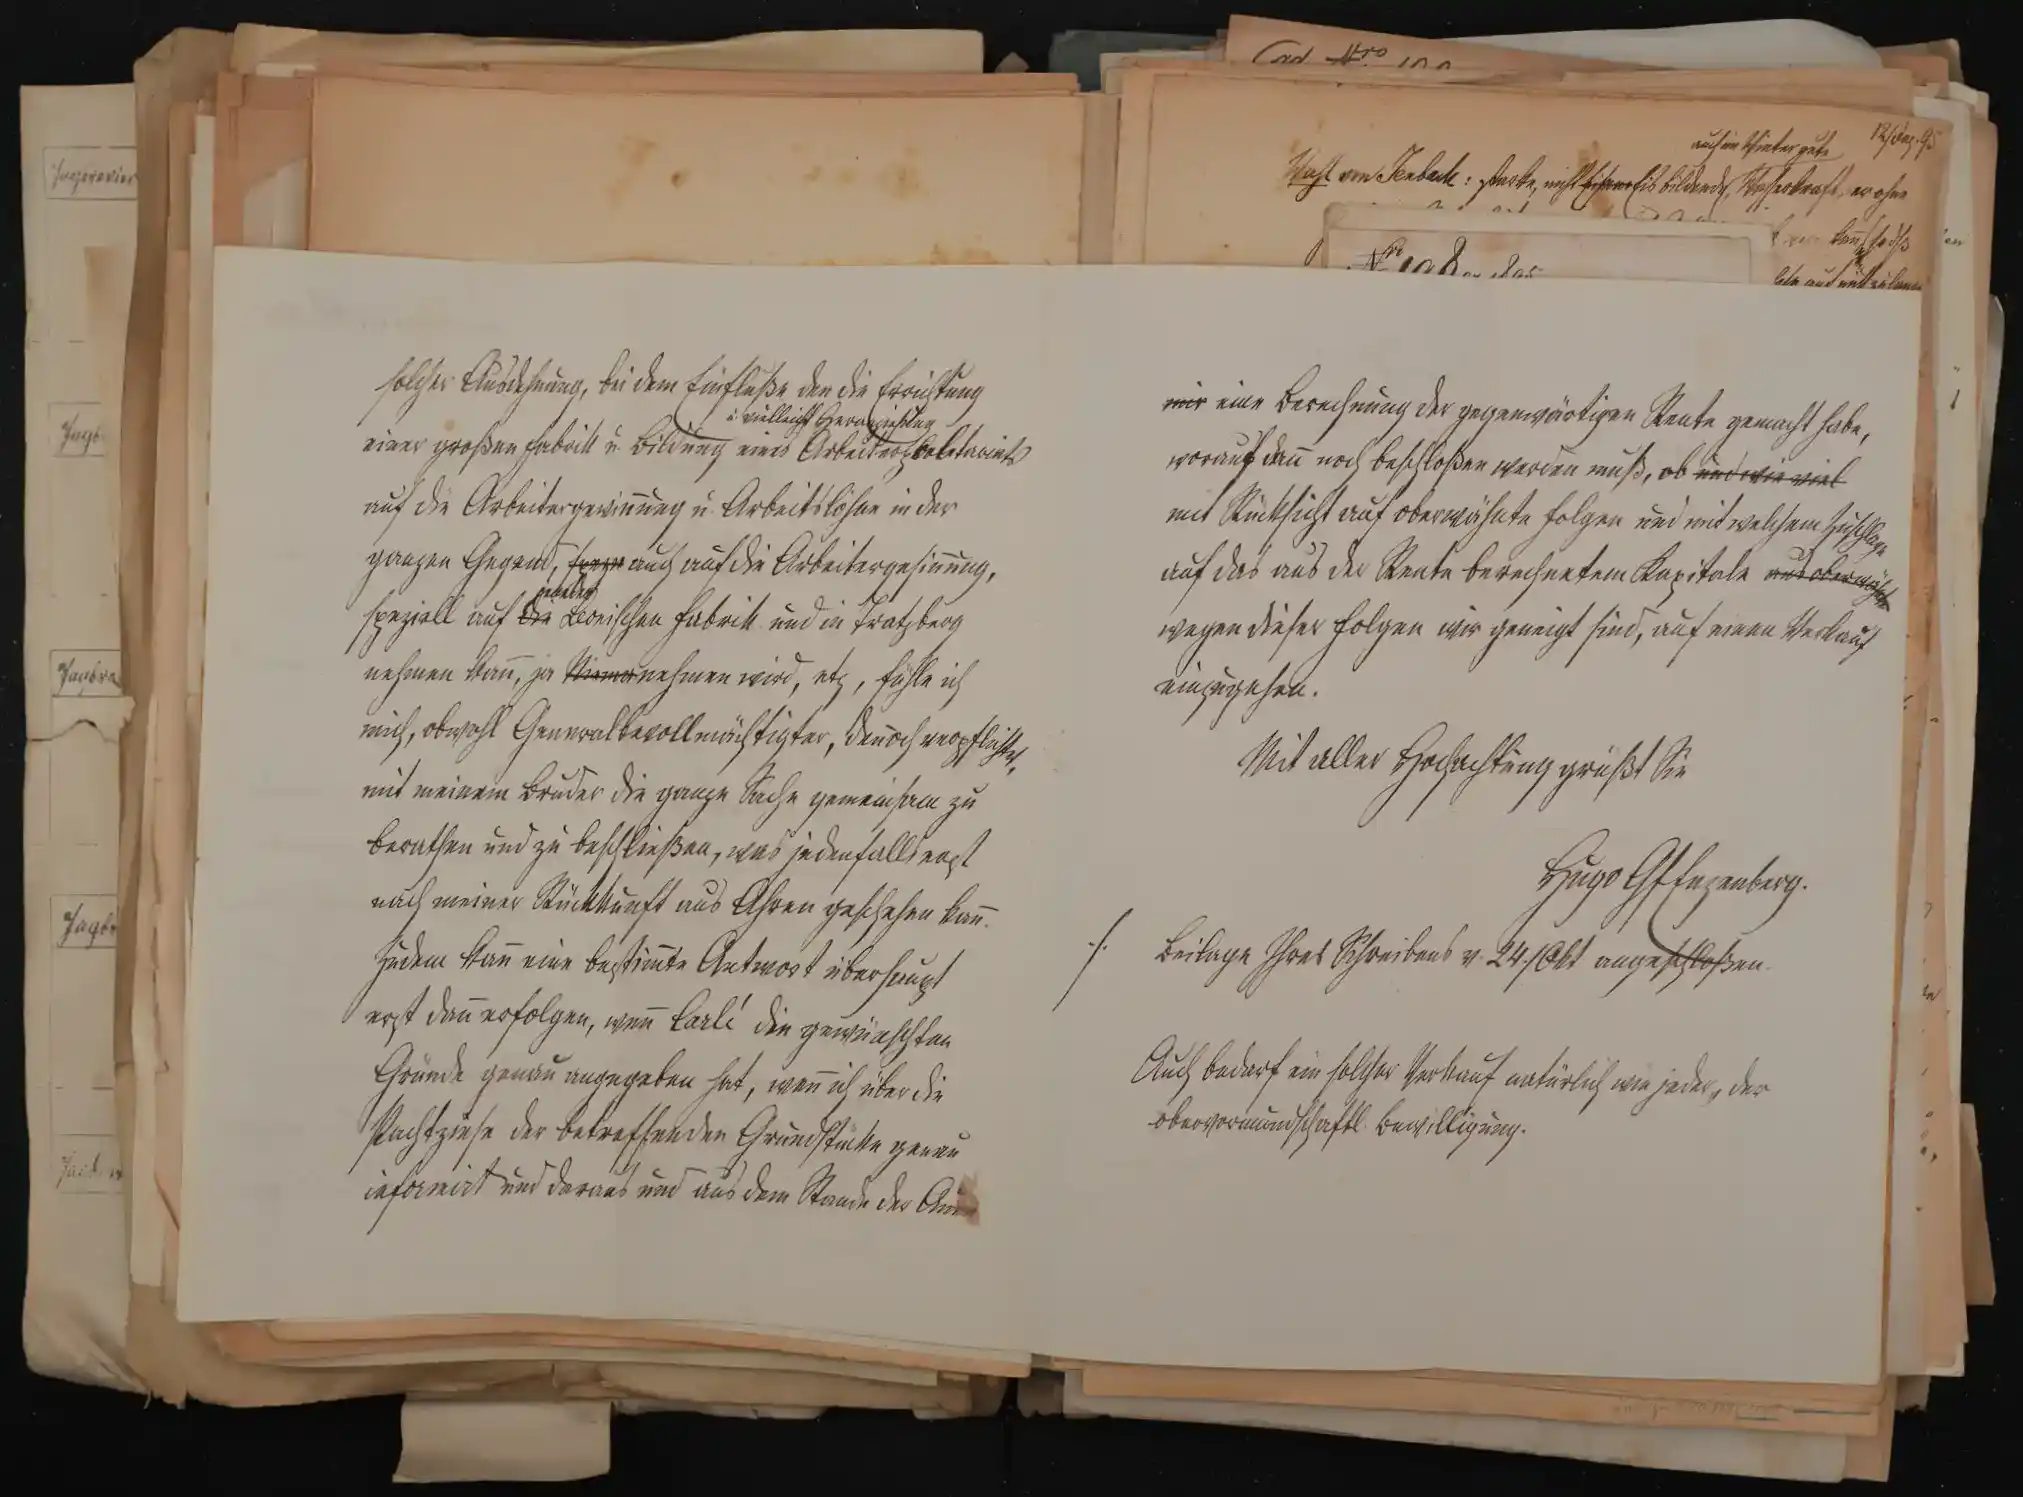 solcher Ausdehnung, bei dem Einfluße den die Errichtung
u. vielleicht Heranziehung
einer großen Fabrik u. Bildung eines Arbeiterproletariats
auf die Arbeitergewinnung u. Arbeitslöhne in der
ganzen Gegend, auch auf die Arbeitergesinnung,
speziell auf die Leonischen Fabrik und in Tratzberg
nehmen kann, ja nehmen wird, etz, fühle ich
mich, obwohl Generalbevollmächtigter, dennoch verpflichtet,
mit meinem Bruder die ganze Sache gemeinsam zu
berathen und zu beschließen, was jedenfalls erst
nach meiner Rückkunft aus Ahren geschehen kann.
Zudem kann eine bestimmte Antwort überhaupt
erst dann erfolgen, wenn Carli die gewünschten
Gründe genau angegeben hat, wenn ich über die
Pachtzinse der betreffenden Grundstücke genau
informirt und daraus und aus dem Stande der
mir eine Berechnung der gegenwärtigen Rente gemacht habe,
worauf dann noch beschloßen werden muß, ob und wie viel
mit Rücksicht auf oberwähnte Folgen und mit welchem Zuschlage
auf das aus der Rente berechnetem Kapitale aus oberwähnten
wegen dieser Folgen wir geneigt sind, auf einen Verkauf
einzugehen.
Mit aller Hochachtung grüßt Sie
Hugo Gf Enzenberg.
./. Beilage Ihres Schreibens v. 24./Okt angeschloßen.
Auch bedarf ein solcher Verkauf natürlich wie jeder, der
obervormundschaftl. Bewilligung.
12/Dez. 95
auch im Winter gute
Wahl von Jenbach: starke, nicht Eis bildende, Wasserkraft, er ohne
Nro
Jagdrevier